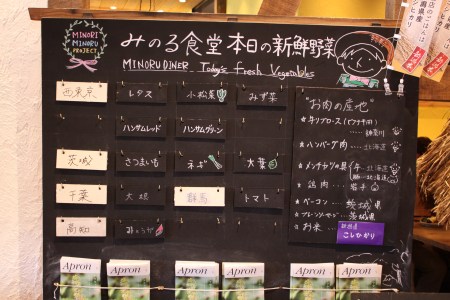 MINORI
MINORU
PROJECT
みのる食堂 本日の新鮮野菜
MINORU DINER Today's Fresh Vegetables
西東京 レタス 小松菜 みず菜
ハンサムレッド ハンサムグリーン
茨城 さつまいも ネギ 大葉
千葉 大根 群馬 トマト
高知 みょうが
"お肉の産地"
★ハンバーグ肉
…北海道
★メンチカツの具
牛…北海道
豚…北海道
★鶏肉……岩手
★ベーコン…茨城県
…茨城県
★お米……新潟県産
こしひかり
Apron
Apron
Apron
Apron
Apron
Apron